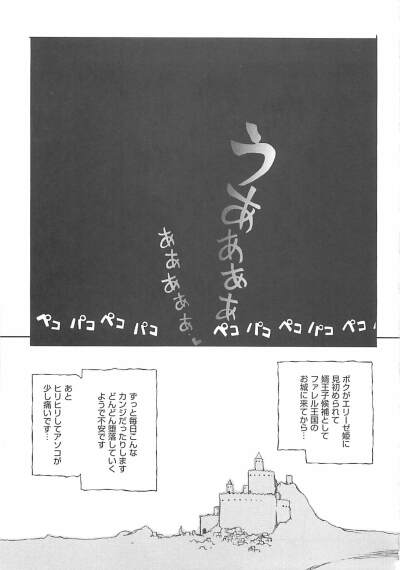 うあぁぁぁぁ
ああああぁ…♥
ペコ パコ ペコ パコ ペコ パコ ペコ パコ
ボクがエリーゼ姫に
見初められて
婿王子候補として
ファレル王国の
お城に来てから…
ずっと毎日こんな
カンジだったりします
どんどん堕落していく
ようで不安です
あと
ヒリヒリしてアソコが
少し痛いです…